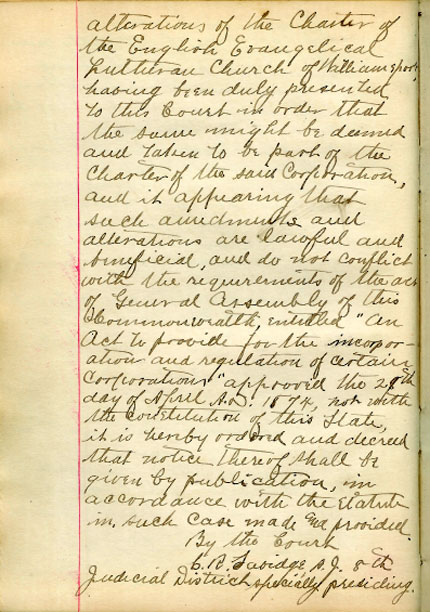 alterations of the Charter of
the English Evangelical
Lutheran Church of Williamsport,
having been duly presented
to this Court in order that
the same might be deemed
and taken to be part of the
Charter of the said Corporation,
and it appearing that
such amendments and
alterations are lawful and
beneficial, and do not conflict
with the requirements of the act
of General Assembly of this
Commonwealth, entitled "An
Act to provide for the incorpor-
ation and regulation of certain
Corporations" approved the 29th
day of April A.D. 1874, nor with
the constitution of this State,
it is hereby ordered and decreed
that notice thereof shall be
given by publication, in
accordance with the Statute
in such case made and provided.
By the Court
C. R. Savidge P.J. 8th
Judicial District specially presiding.